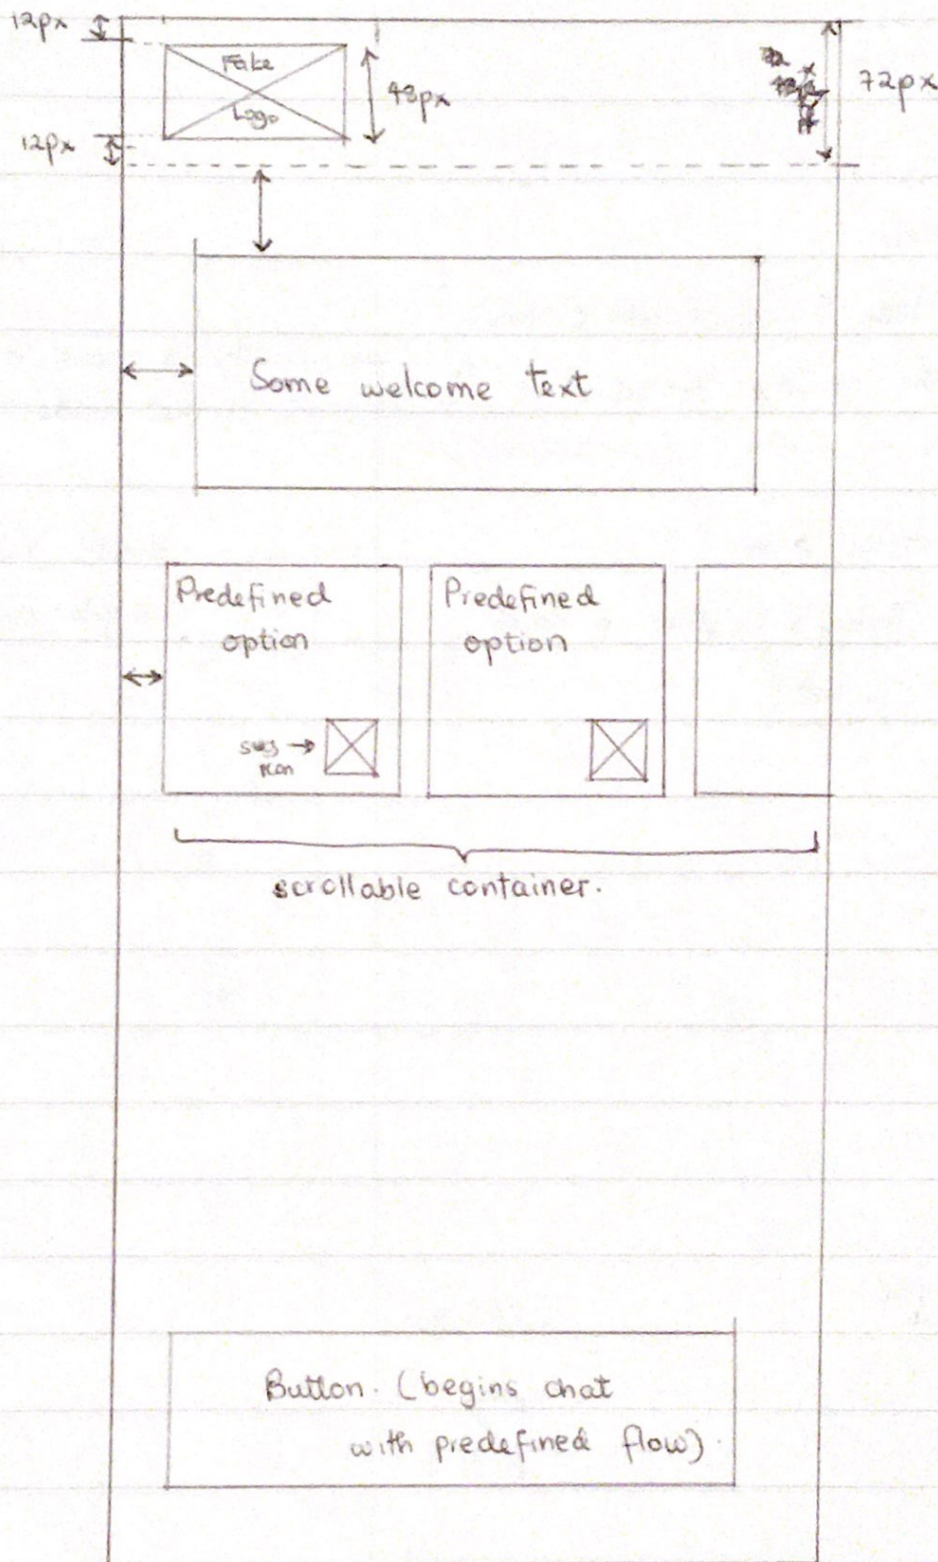 12px
Fake
Logo
48px
72px
12px
Some welcome text
Predefined
option
Predefined
option
svg →
icon
scrollable container.
Button. (begins chat
with predefined flow).